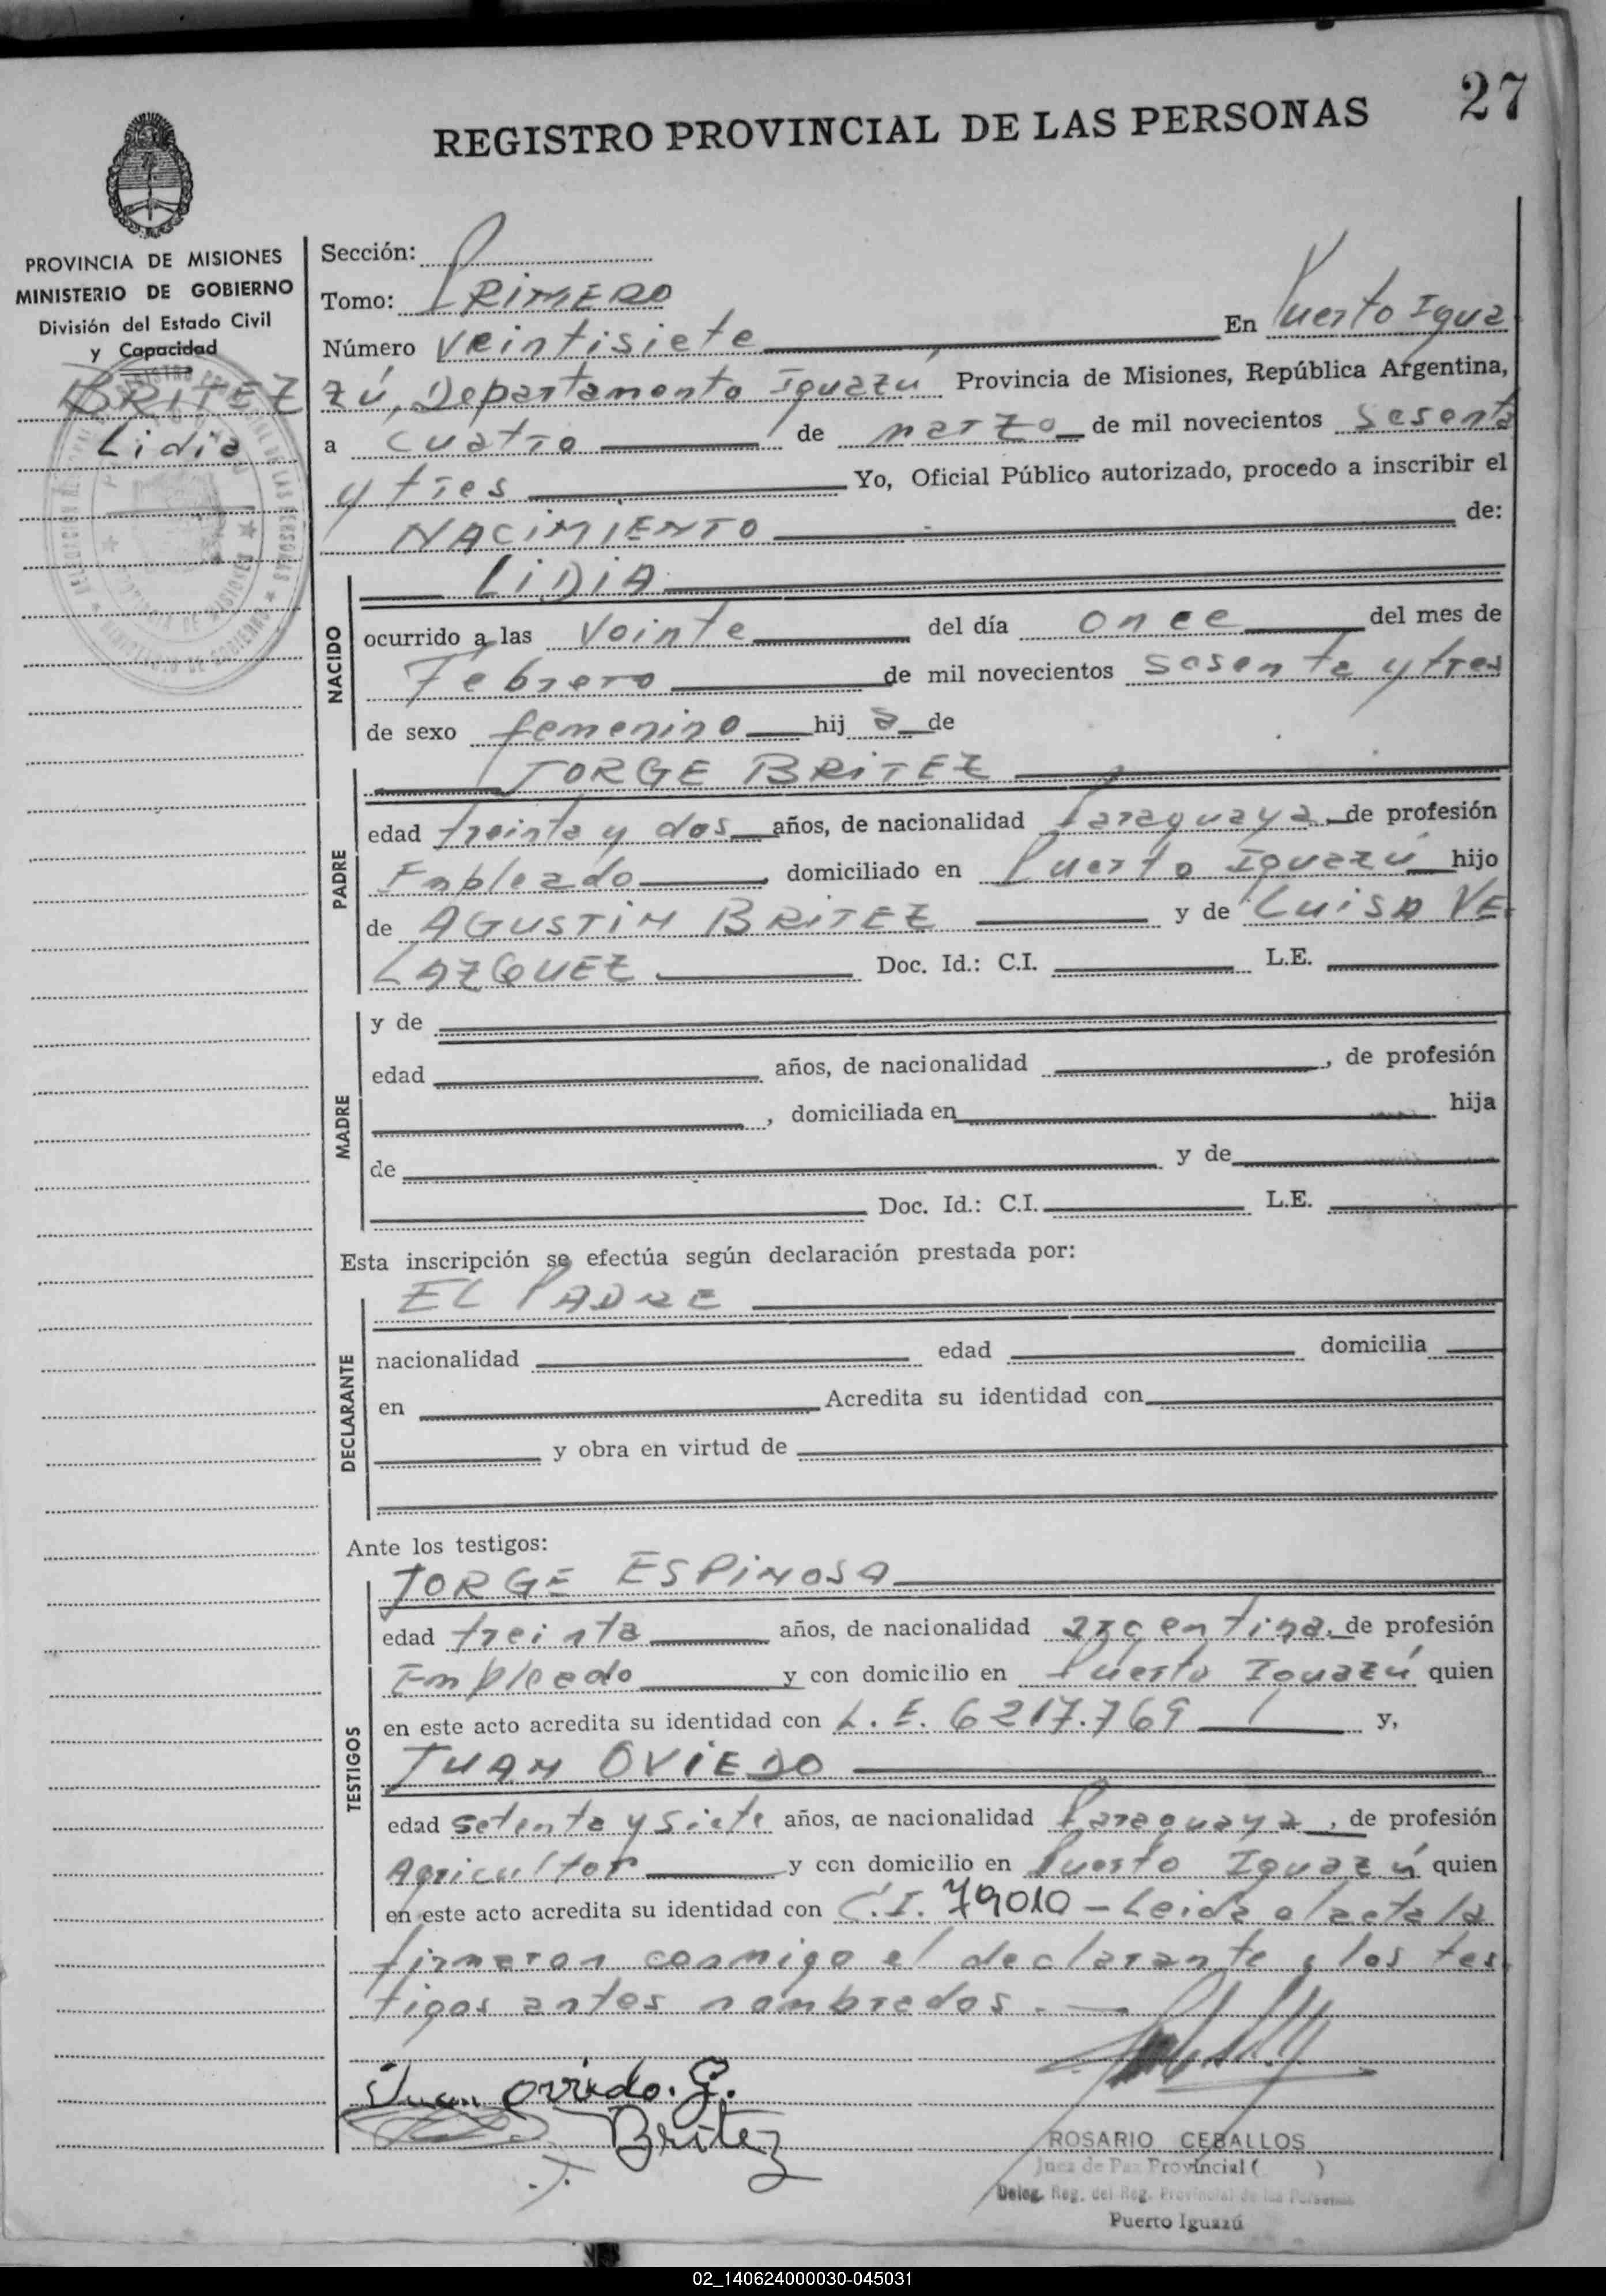 27
REGISTRO PROVINCIAL DE LAS PERSONAS
PROVINCIA DE MISIONES
MINISTERIO DE GOBIERNO
División del Estado Civil
y Capacidad
BRITEZ
Lidia
Sección:
Tomo: PRIMERO
Número veintisiete En Puerto Igua
zú, Departamento Iguazu Provincia de Misiones, República Argentina,
a cuatro de marzo de mil novecientos sesenta
y tres Yo, Oficial Público autorizado, procedo a inscribir el
NACIMIENTO de:
NACIDO
LIDIA
ocurrido a las veinte del día once del mes de
Febrero de mil novecientos sesenta y tres
de sexo femenino hij a de
PADRE
JORGE BRITEZ
edad treinta y dos años, de nacionalidad Paraguaya de profesión
Enpleado, domiciliado en Puerto Iguazú hijo
de AGUSTIN BRITEZ y de LUISA VE
LAZQUEZ Doc. Id.: C.I. L.E.
MADRE
y de
edad años, de nacionalidad , de profesión
, domiciliada en hija
de y de
Doc. Id.: C.I. L.E.
Esta inscripción se efectúa según declaración prestada por:
DECLARANTE
EL PADRE
nacionalidad edad domicilia
en Acredita su identidad con
y obra en virtud de
Ante los testigos:
TESTIGOS
JORGE ESPINOSA
edad treinta años, de nacionalidad argentina de profesión
Empleado y con domicilio en Puerto Iguazú quien
en este acto acredita su identidad con L.E. 6217.769 y,
JUAN OVIEDO
edad setenta y siete años, de nacionalidad Paraguaya, de profesión
Agricultor y con domicilio en Puerto Iguazú quien
en este acto acredita su identidad con C.I. 79010 - Leida el acta la
firmaron conmigo el declarante y los tes
tigos antes nombrados.
Juan oviedo. G.
Britez
ROSARIO CEBALLOS
Juez de Paz Provincial ( )
Deleg. Reg. del Reg. Provincial de las Personas
Puerto Iguazú
02_140624000030-045031